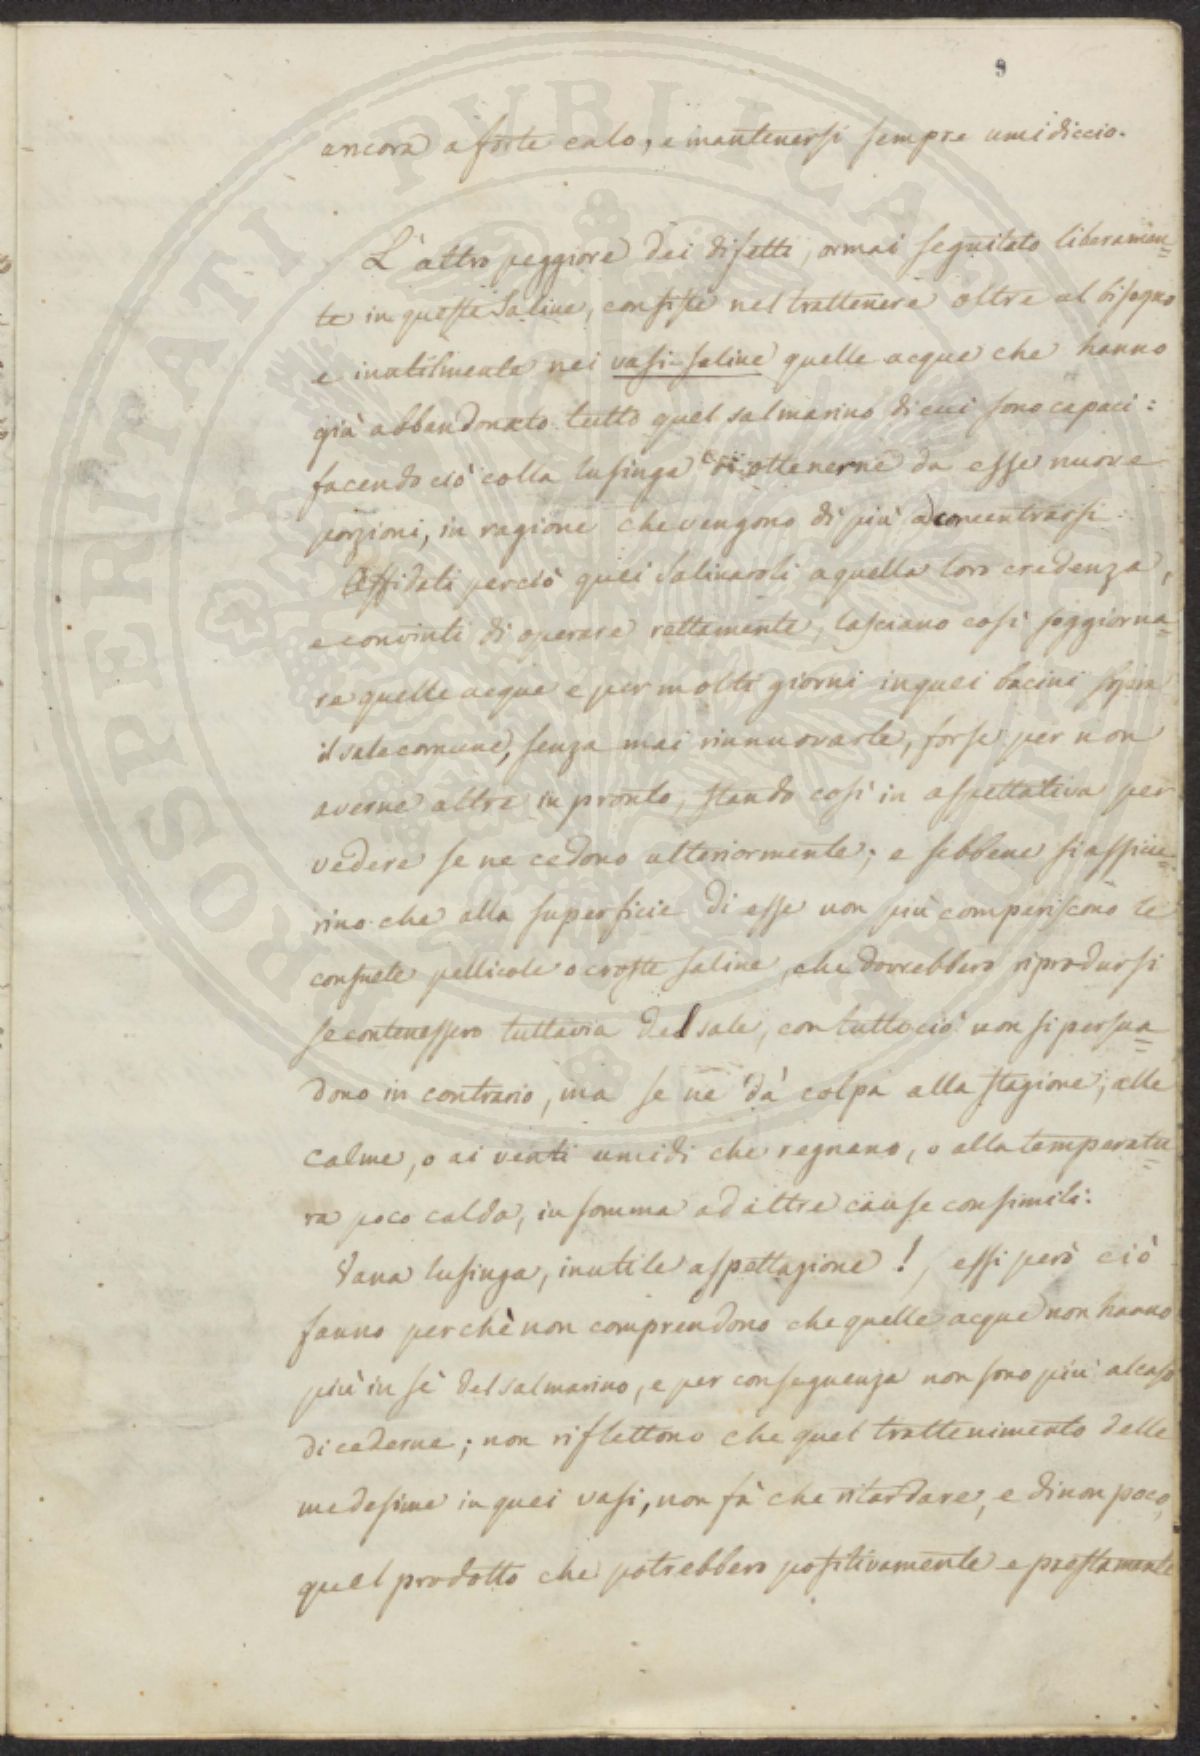 9
ancora a forte calo, e mantenersi sempre umidiccio.
L'altro peggiore dei difetti, ormai seguitato liberamen=
te in queste Saline, consiste nel trattenere oltre al bisogno
e inutilmente nei vasi-saline quelle acque che hanno
già abbandonato tutto quel salmarino di cui sono capaci:
facendo ciò colla lusinga di ottenerne da esse nuove
porzioni, in ragione che vengono di più a concentrarsi.
Affidati perciò quei Salinaroli a quella loro credenza,
e convinti di operare rettamente, lasciano così soggiorna=
re quelle acque e per molti giorni in quei bacini sopra
il sale comune, senza mai rinnuovarle, forse per non
averne altre in pronto, stando così in aspettativa per
vedere se ne cedono ulteriormente; e sebbene si assicu=
rino che alla superficie di esse non più comperiscono le
consuete pellicole o croste saline, che dovrebbero riprodursi
se contenessero tuttavia del sale, con tutto ciò non si persua=
dono in contrario, ma se ne dà colpa alla stagione, alle
calme, o ai venti umidi che regnano, o alla temperatu=
ra poco calda, in somma ad altre cause consimili:
Vana lusinga, inutile aspettazione!, essi però ciò
fanno perchè non comprendono che quelle acque non hanno
più in sè del salmarino, e per conseguenza non sono più al caso
di cederne; non riflettono che quel trattenimento delle
medesime in quei vasi, non fà che ritardare, e di non poco,
quel prodotto che potrebbero positivamente e prestamente
PROSPERITATI PVBLICAE